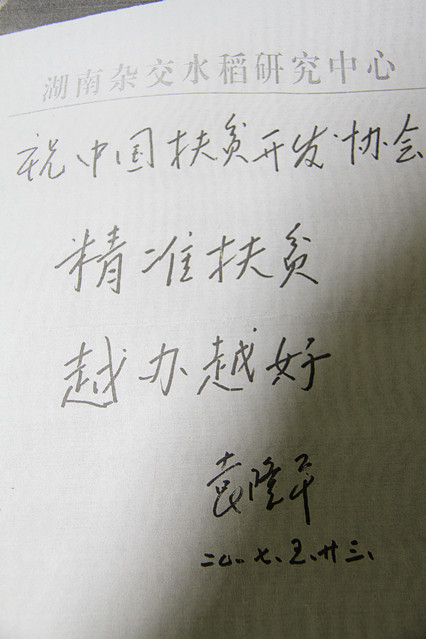 湖南杂交水稻研究中心
祝中国扶贫开发协会
精准扶贫
越办越好
袁隆平
二〇一七.五.廿三、